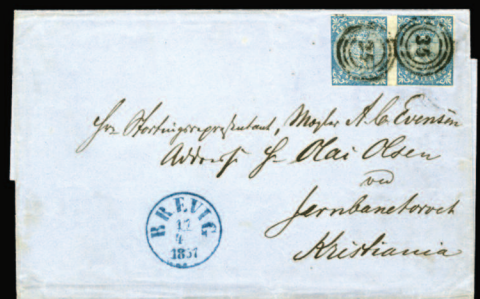 35 35
Hr Stortingsrepræsentant, Mægler A. C. Evensen
Address Hr Olai Olsen
ved
Jernbanetorvet
Kristiania
BREVIG
17
4
1857